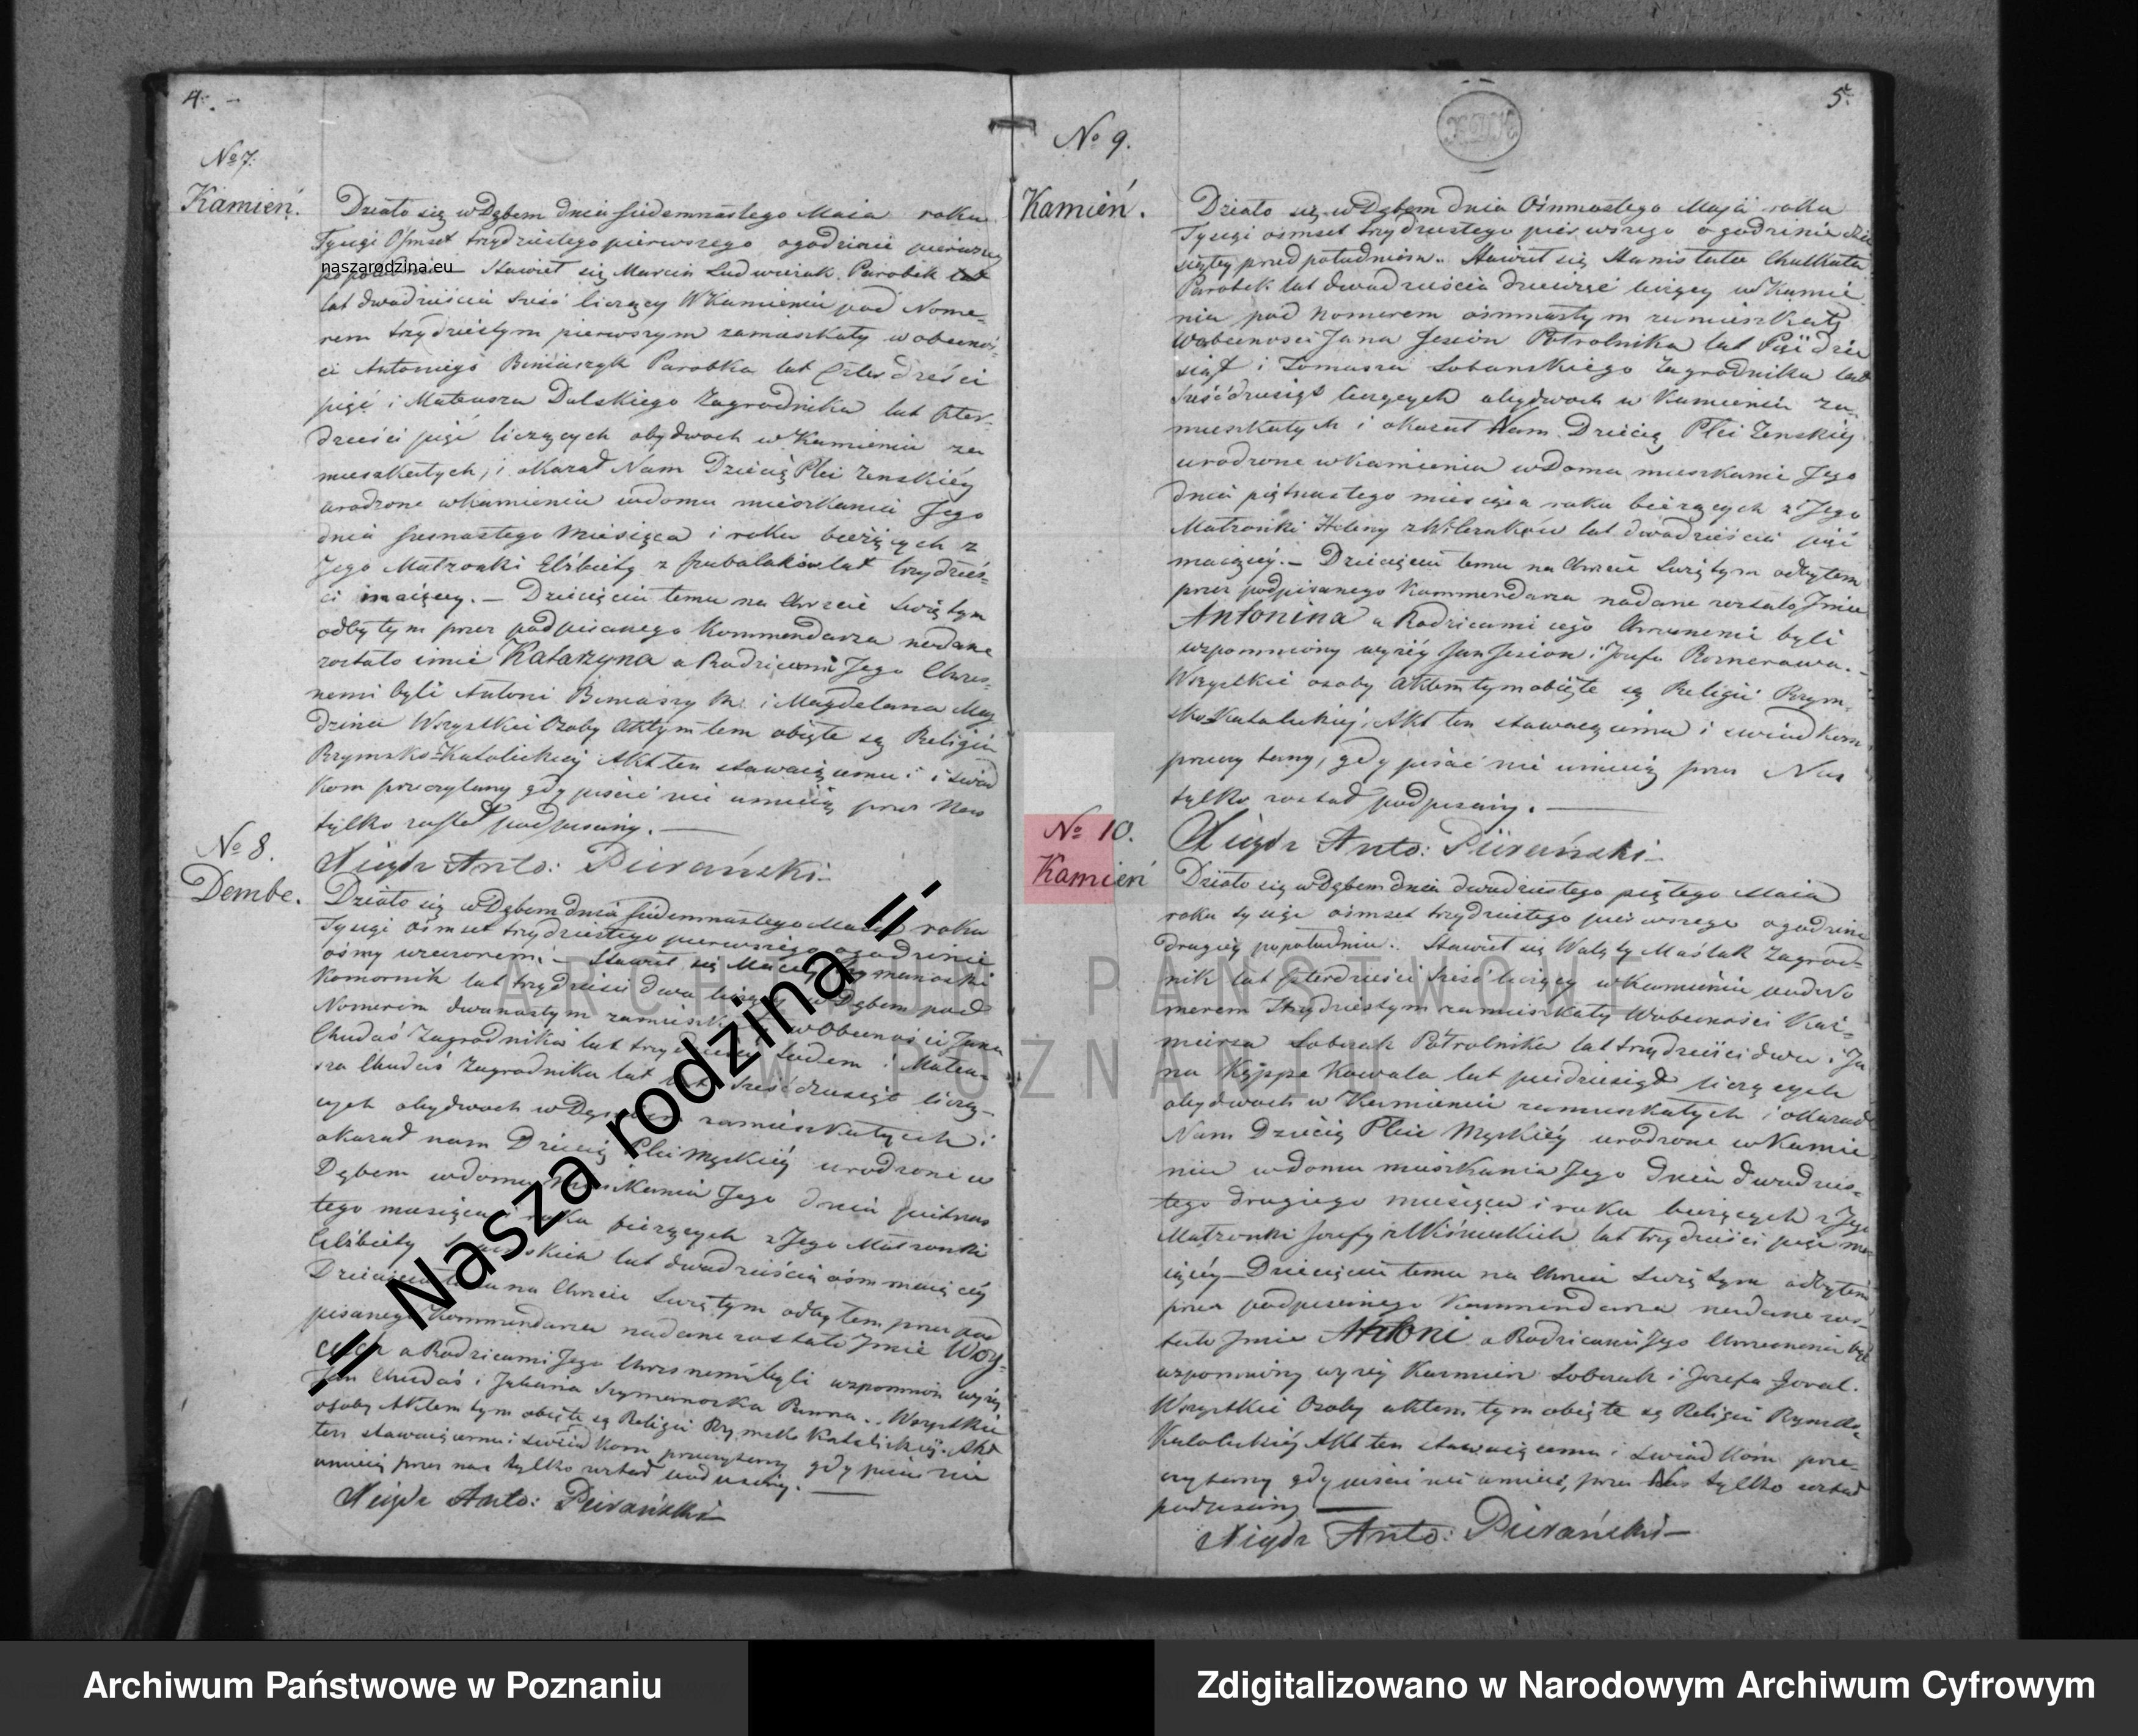 4.
No 7.
Kamień.
Działo się w Dębem dnia siedemnastego Maia roku
Tysiąc Osmset trzydziestego pierwszego o godzinie pierwszey
naszarodzina.eu
Stawił się Marcin Ludwiczak Parobek
lat dwadzieścia sześć liczący W Kamieniu pod Nome-
rem trzydziestym pierwszym zamieszkały w obecnoś-
ci Antoniego Beniaszyk Parobka lat Czterdzieści
pięć i Mateusza Dalskiego Zagrodnika lat Czter-
dzieści pięć liczących obydwoch w Kamieniu za
mieszkałych, i okazał Nam Dziecię Płci Zenskiéy
urodzone w Kamieniu w domu mieszkania Jego
dnia szesnastego Miesiąca i roku bieżących z
Jego Małżonki Elżbiety z lat trzydzieś-
ci maiącey. — Dziecięciu temu na Chrzcie Swiętym
odbytym przez podpisanego Kommendarza nadane
zostało imie Katarzyna a Rodzicami Jego Chrzes-
nemi byli Antoni i Magdalena
Wszystkie Osoby Aktym tem obięte są Religii
Rzymsko-Katolickiey Akt ten stawaiącemu i swiad
kom przeczytany gdy pisać nie umieią przez Nas
tylko został podpisany. —
Xiądz Anto: Pierański
No 8.
Dembe.
Działo się w Dębem dnia siedemnastego Maia roku
Tysiąc osmset trzydziestego pierwszego o godzinie
ósmy wieczorem. — Stawił się Maciey
Komornik lat trzydzieści dwa liczący w Dębem pod
Nomerem dwunastym w Obecności Jana
Chudaś Zagrodnika lat siedem i Mateu-
sza Chudaś Zagrodnika lat sześćdziesiąt liczą-
cych obydwoch w zamieszkałych i
okazał nam Dziecię Płci Męskiéy urodzone w
Dębem w domu Jego dnia
tego miesiąca bieżących z Jego Małżonki
Elżbiety lat dwadzieścia ośm maiącéy
na Chrzcie Swiętym odbytem przez pod
pisanego Kommendarza nadane zostało Jmie Woy-
a Rodzicami Jego Chrzesnemi byli wspomnion wyżéy
Chudaś i Panna. Wszystkie
osoby Aktem tym obięte są Religii Rzymsko Katolickiéy. Akt
ten stawaiącemu i swiadkom przeczytany gdy pisać nie
umieią przez nas tylko został podpisany. —
Xiądz Anto: Pierański
5.
No 9.
Kamień.
Działo się w Dębem dnia Osmnastego Maja roku
Tysiąc osmset trzydziestego pierwszego o godzinie dzie
siątey przed południem. Stawił się Stanisław
Parobek lat dwadzieścia dziewięć liczący w Kamie
niu pod Nomerem osmnastym zamieszkały
W obecnosci Jana Jesion Półrolnika lat Pięćdzie
siąt i Tomasza Sobanskiego Zagrodnika lat
Sześćdziesiąt liczących obydwoch w Kamieniu za-
mieszkałych i okazał Nam Dziecię Płci Zenskiéy
urodzone w Kamieniu w Domu mieszkania Jego
dnia piętnastego miesiąca roku bieżących z Jego
Małżonki Heleny lat dwadzieścia pięć
maiącéy. — Dziecięciu temu na Chrzcie Swiętym odbytem
przez podpisanego Kommendarza nadane zostało Jmie
Antonina a Rodzicami iego Chrzesnemi byli
wspomniony wyżéy Jan Jesion i Jozefa
Wszystkie osoby aktem tym obięte są Religii Rzym-
sko-Katolickiéj, Akt ten stawaiącemu i swiadkom
przeczytany, gdy pisać nie umieią przez Nas
tylko został podpisany. —
Xiądz Anto: Pierański
No 10.
Kamień
Działo się w Dębem dnia dwudziestego piątego Maia
roku tysiąc osmset trzydziestego pierwszego o godzinie
drugiéy po południu. Stawił się Walęty Maślak Zagrod-
nik lat czterdzieści sześć liczący w Kamieniu pod No
merem Trzydziestym zamieszkały W obecności Kaź-
mierza Sobczak Półrolnika lat trzydzieści dwa i Ja
na Kowala lat pięćdziesiąt liczących
obydwoch w Kamieniu zamieszkałych i okazał
Nam Dziecię Płci Męskiéy urodzone w Kamie
niu w domu mieszkania Jego Dnia dwudzies-
tego drugiego miesiąca i roku bieżących z Jego
Małżonki Jozefy lat trzydzieści pięć ma
iącéy — Dziecięciu temu na Chrzcie Swiętym odbytem
przez podpisanego Kommendarza nadane zos-
tało Jmie Antoni a Rodzicami Jego Chrzesnemi byli
wspomniony wyżéy Kazmierz Sobczak i Jozefa
Wszystkie Osoby aktem tym obięte są Religii Rzymsko
Katolickiéy Akt ten stawaiącemu i swiadkom prze-
czytany gdy pisać nie umieią, przez Nas tylko został
podpisany —
Xiądz Anto: Pierański
ARCHIWUM PAŃSTWOWE
W POZNANIU
=|- Nasza rodzina -|=
Archiwum Państwowe w Poznaniu
Zdigitalizowano w Narodowym Archiwum Cyfrowym